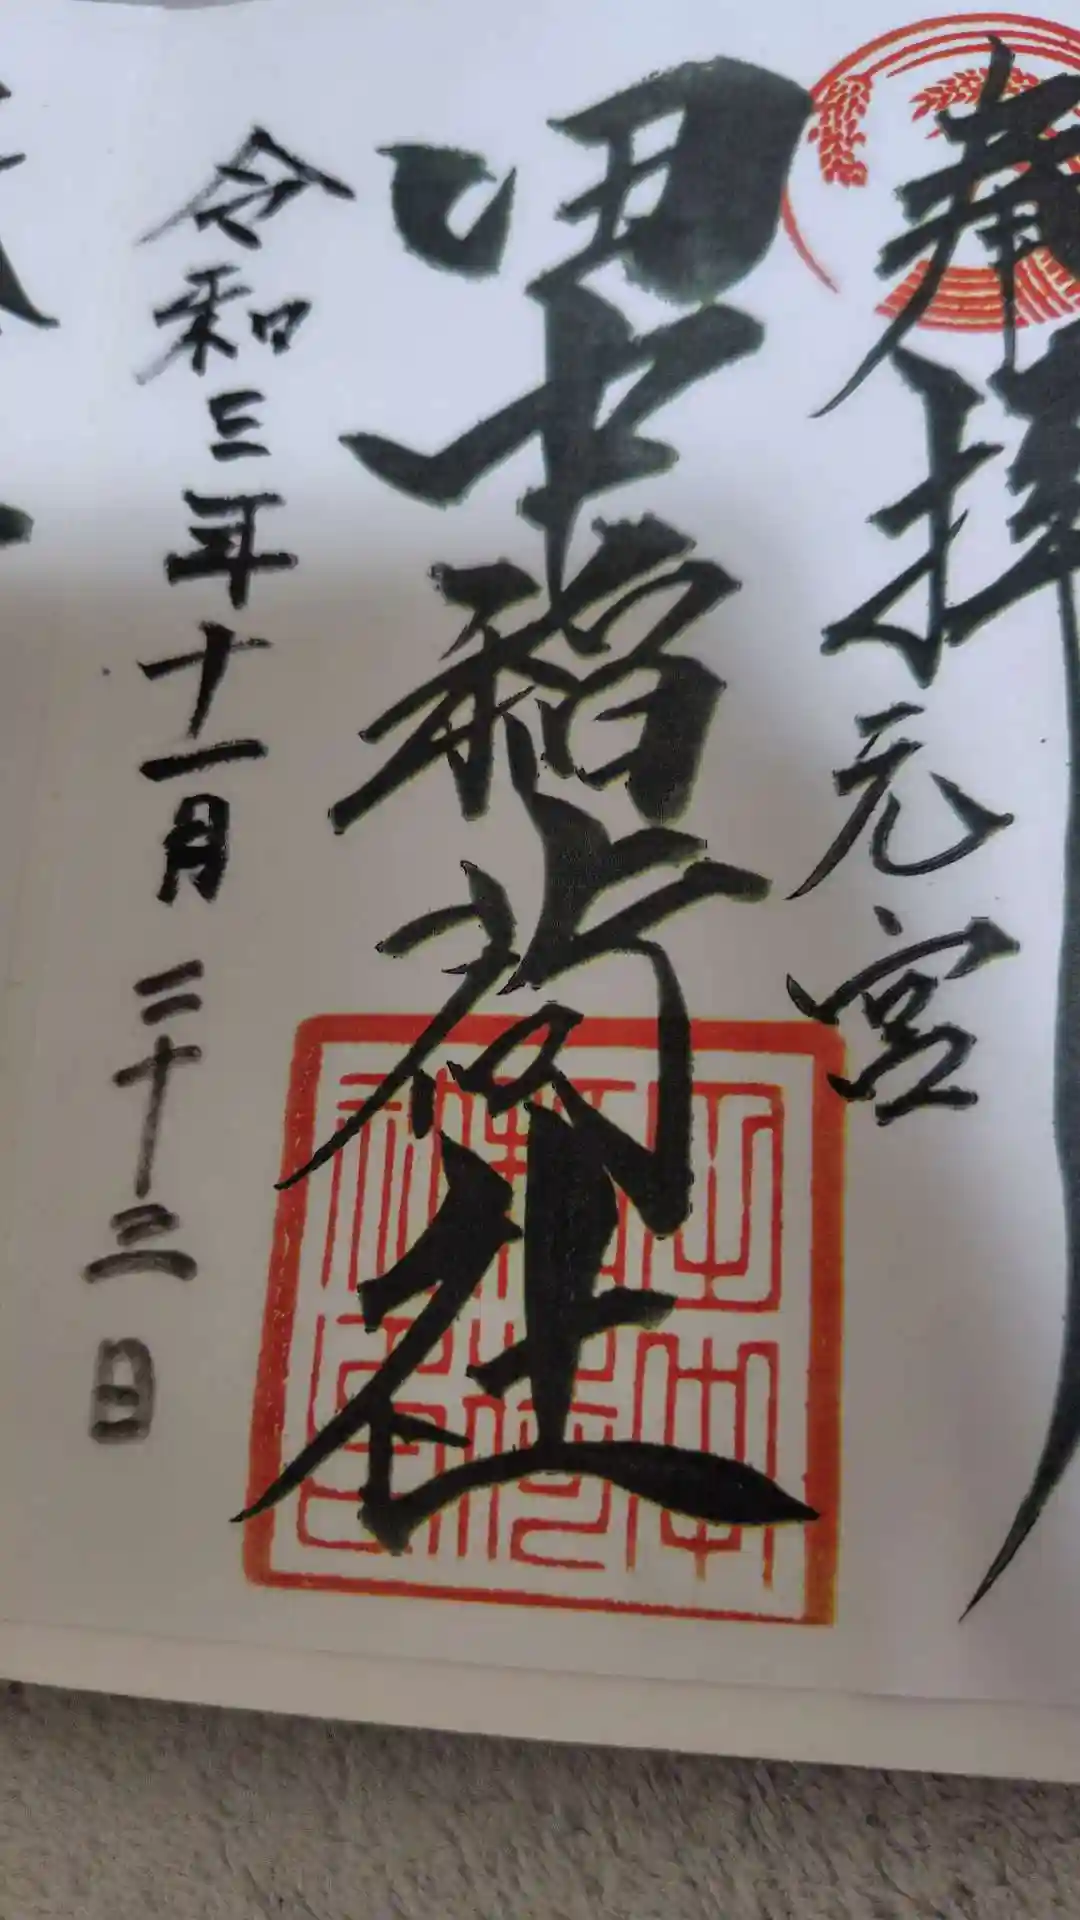 奉拝
元宮
稲荷社
令和三年十一月二十三日